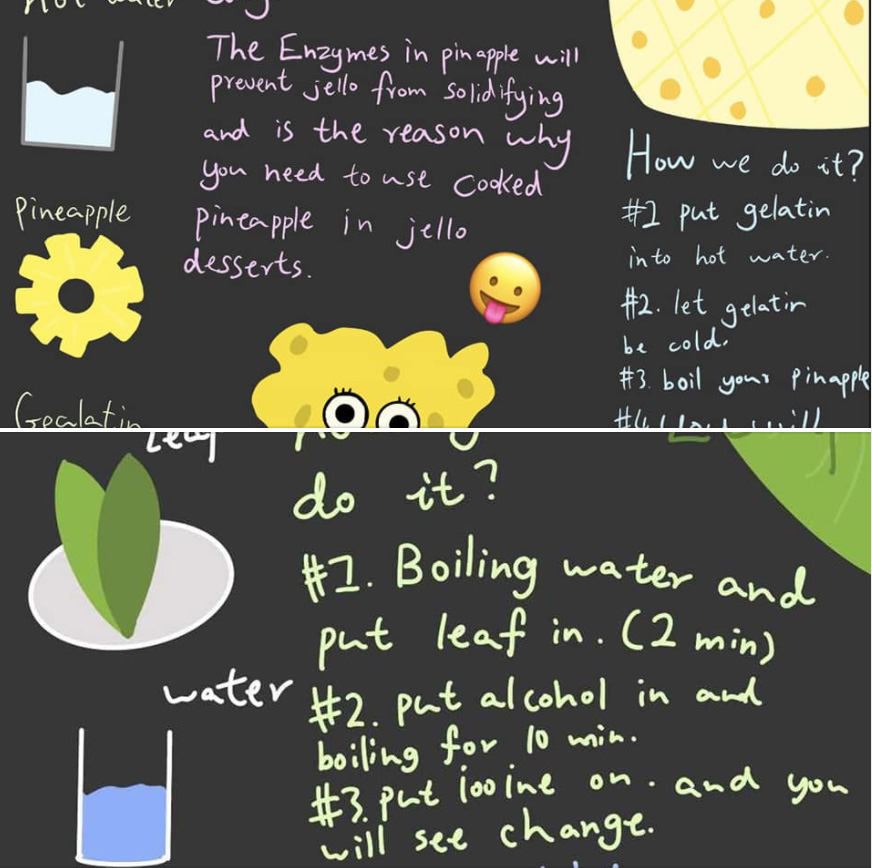 Hot water
The Enzymes in pinapple will
prevent jello from solidifying
and is the reason why
you need to use cooked
pineapple in jello
desserts.
Pineapple
Gealatin
How we do it?
#1 put gelatin
into hot water.
#2. let gelatin
be cold.
#3. boil your Pinapple
#4. will
Leaf
do it?
#1. Boiling water and
put leaf in. (2 min)
water
#2. put alcohol in and
boiling for 10 min.
#3. put iooine on. and you
will see change.